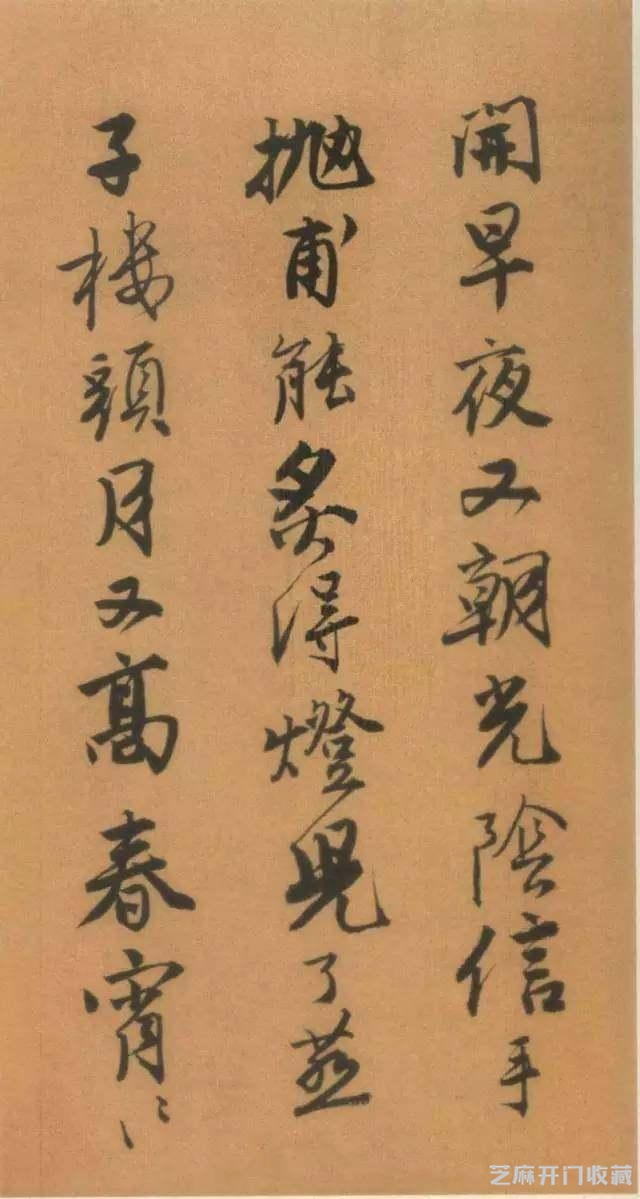 開早夜又朝光陰信手
拋甫能炙得燈兒了燕
子樓頭月又高春宵㆓
芝麻开门收藏